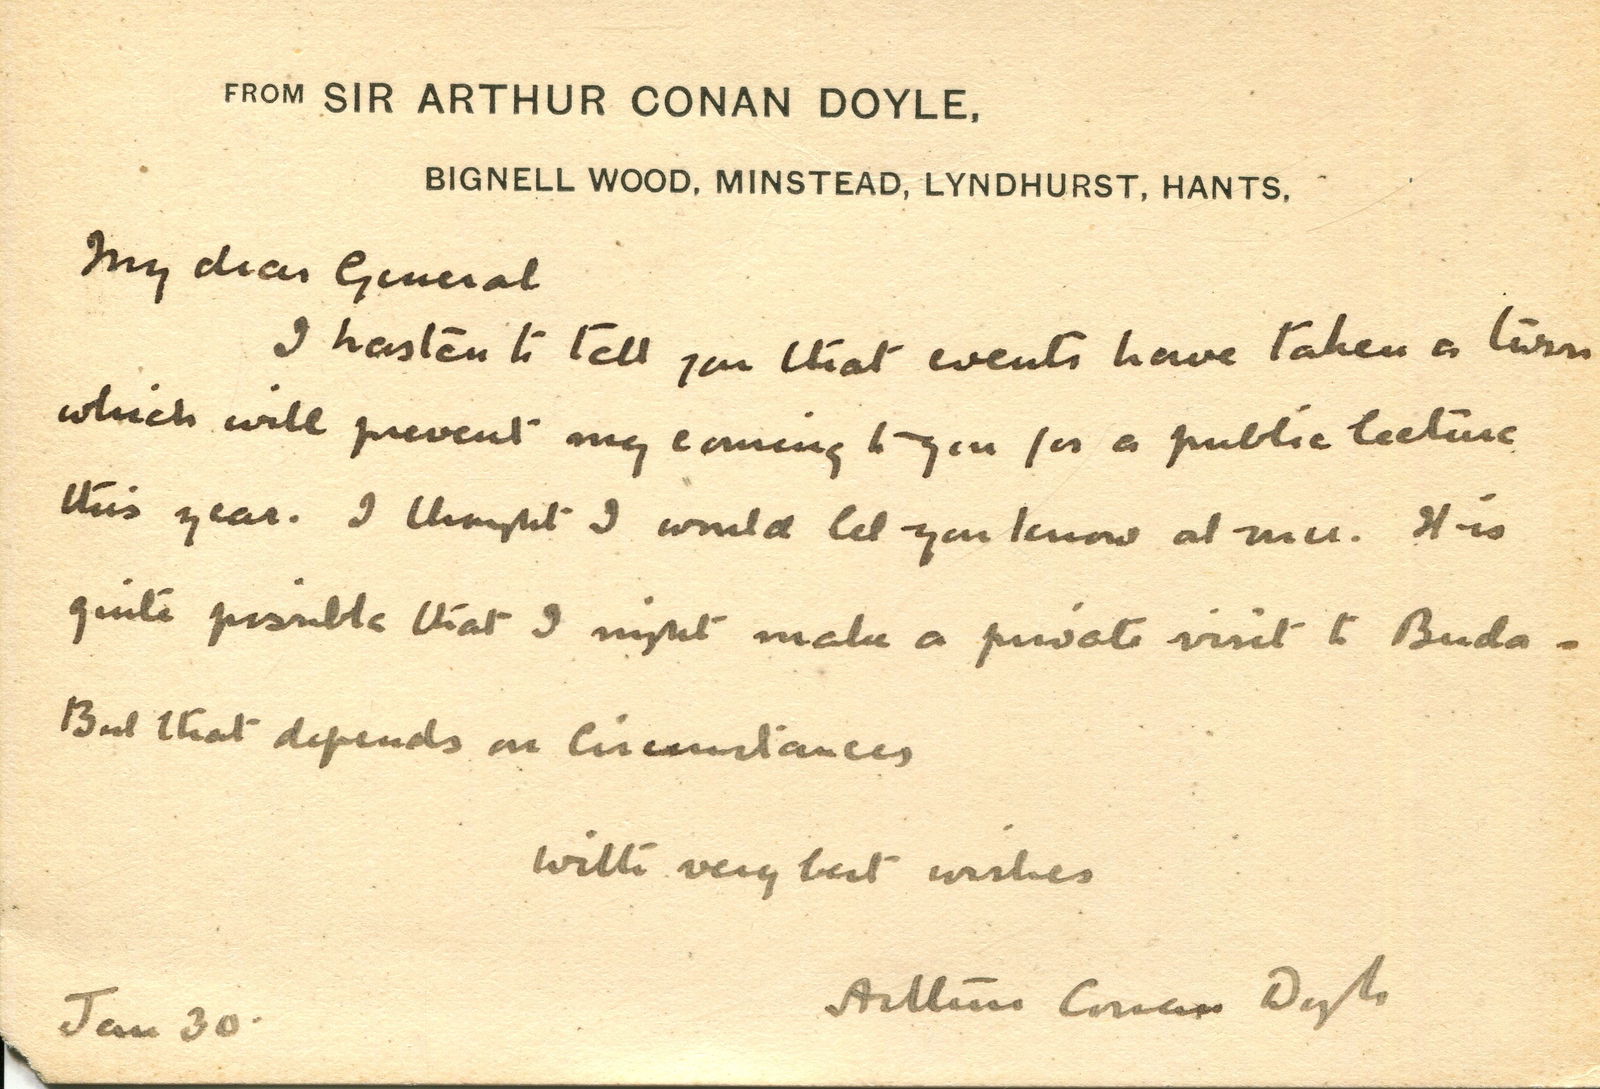 FROM SIR ARTHUR CONAN DOYLE,
BIGNELL WOOD, MINSTEAD, LYNDHURST, HANTS.
My dear General
I hasten to tell you that events have taken a turn
which will prevent my coming to you for a public lecture
this year. I thought I would let you know at once. It is
quite possible that I might make a private visit to Buda -
But that depends on circumstances
With very best wishes
Arthur Conan Doyle
Jan 30.